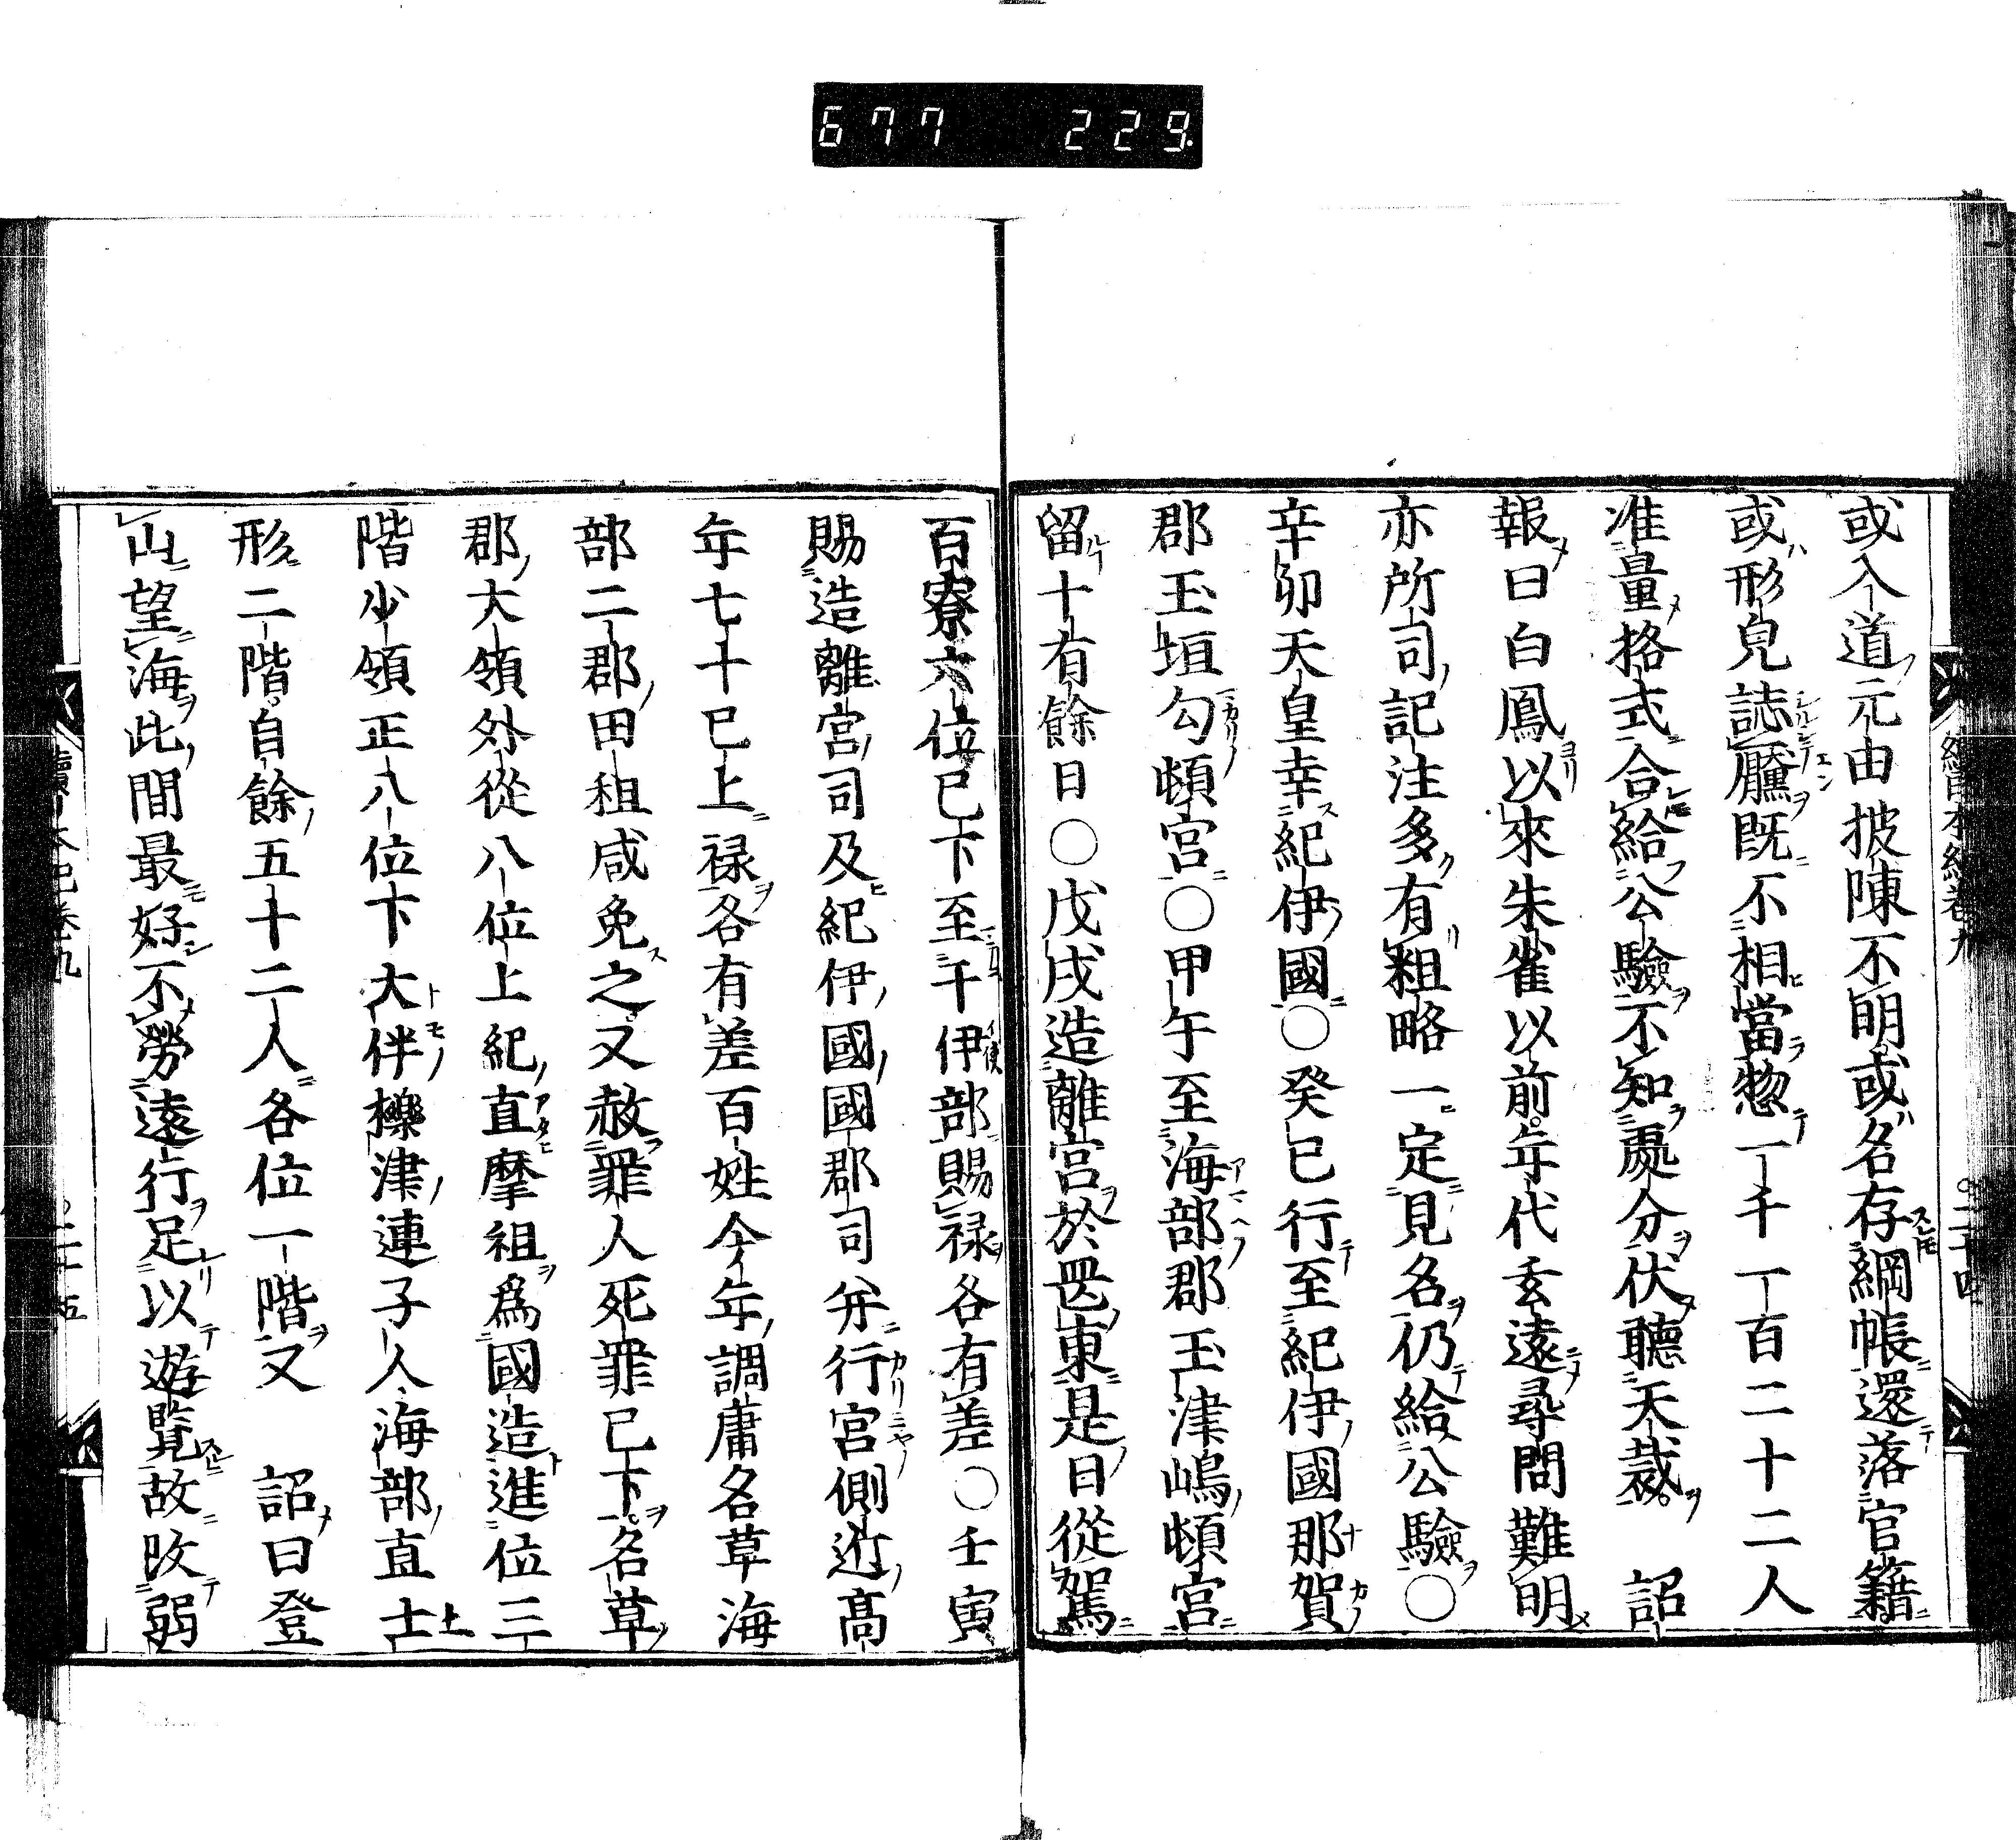 677 229
或入道元由披陳不明或名存綱帳還落官籍
或形皃誌黶既不相當惣一千一百二十二人
准量格式合給公驗不知處分伏聽天裁 詔
報曰白鳳以來朱雀以前年代玄遠尋問難明
亦所司記注多有粗略一定見名仍給公驗〇
辛卯天皇幸紀伊國〇癸巳行至紀伊國那賀
郡玉垣勾頓宮〇甲午至海部郡玉津嶋頓宮
留十有餘日〇戊戌造離宮於罡東是日從駕
百寮六位已下至于伊部賜禄各有差〇壬寅
賜造離宮司及紀伊國國郡司并行宮側近高
年七十已上禄各有差百姓今年調庸名草海
部二郡田租咸免之又赦罪人死罪已下名草
郡大領外從八位上紀直摩祖爲國造進位三
階少領正八位下大伴櫟津連子人海部直士
形二階自餘五十二人各位一階又 詔曰登
山望海此間最好不勞遠行足以遊覽故改弱